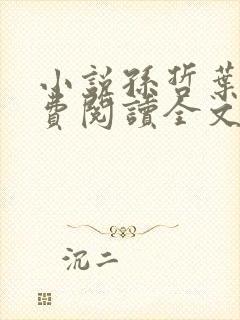 小説孫哲葉
費閱讀全文
沉二